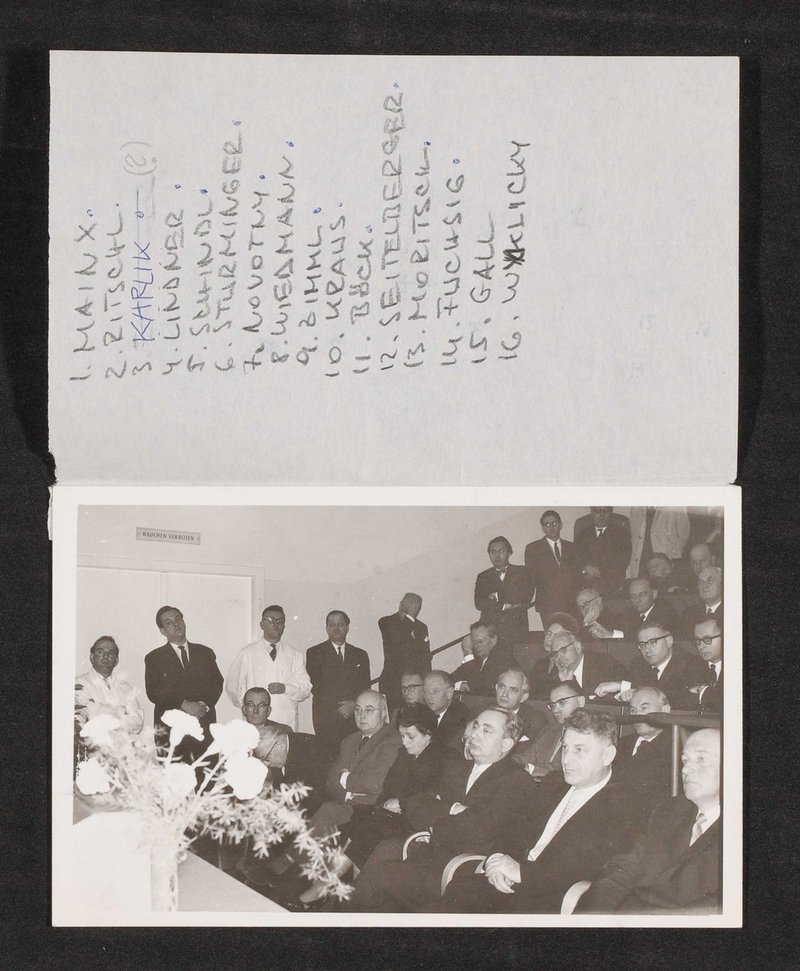 1. MAINX.
2. RITSCHL.
3 KARLIK (?)
4. LINDNER.
5. SCHINDL.
6. STURMINGER.
7. NOVOTNY.
8. WIEDMANN.
9. ZIMML.
10. KRAUS.
11. BÖCK.
12. SEITELBERGER.
13. MORITSCH.
14. FUCHSIG.
15. GALL
16. WYKLICKY
RAUCHEN VERBOTEN